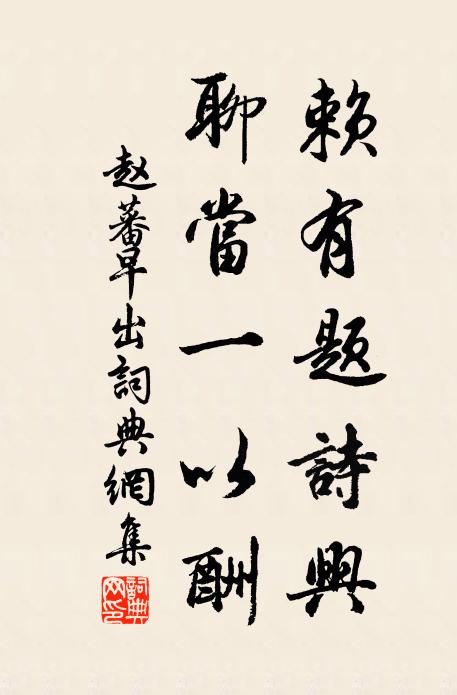 賴有題詩興
聊當一以酬
赵蕃早出詞典網集
詞典網印